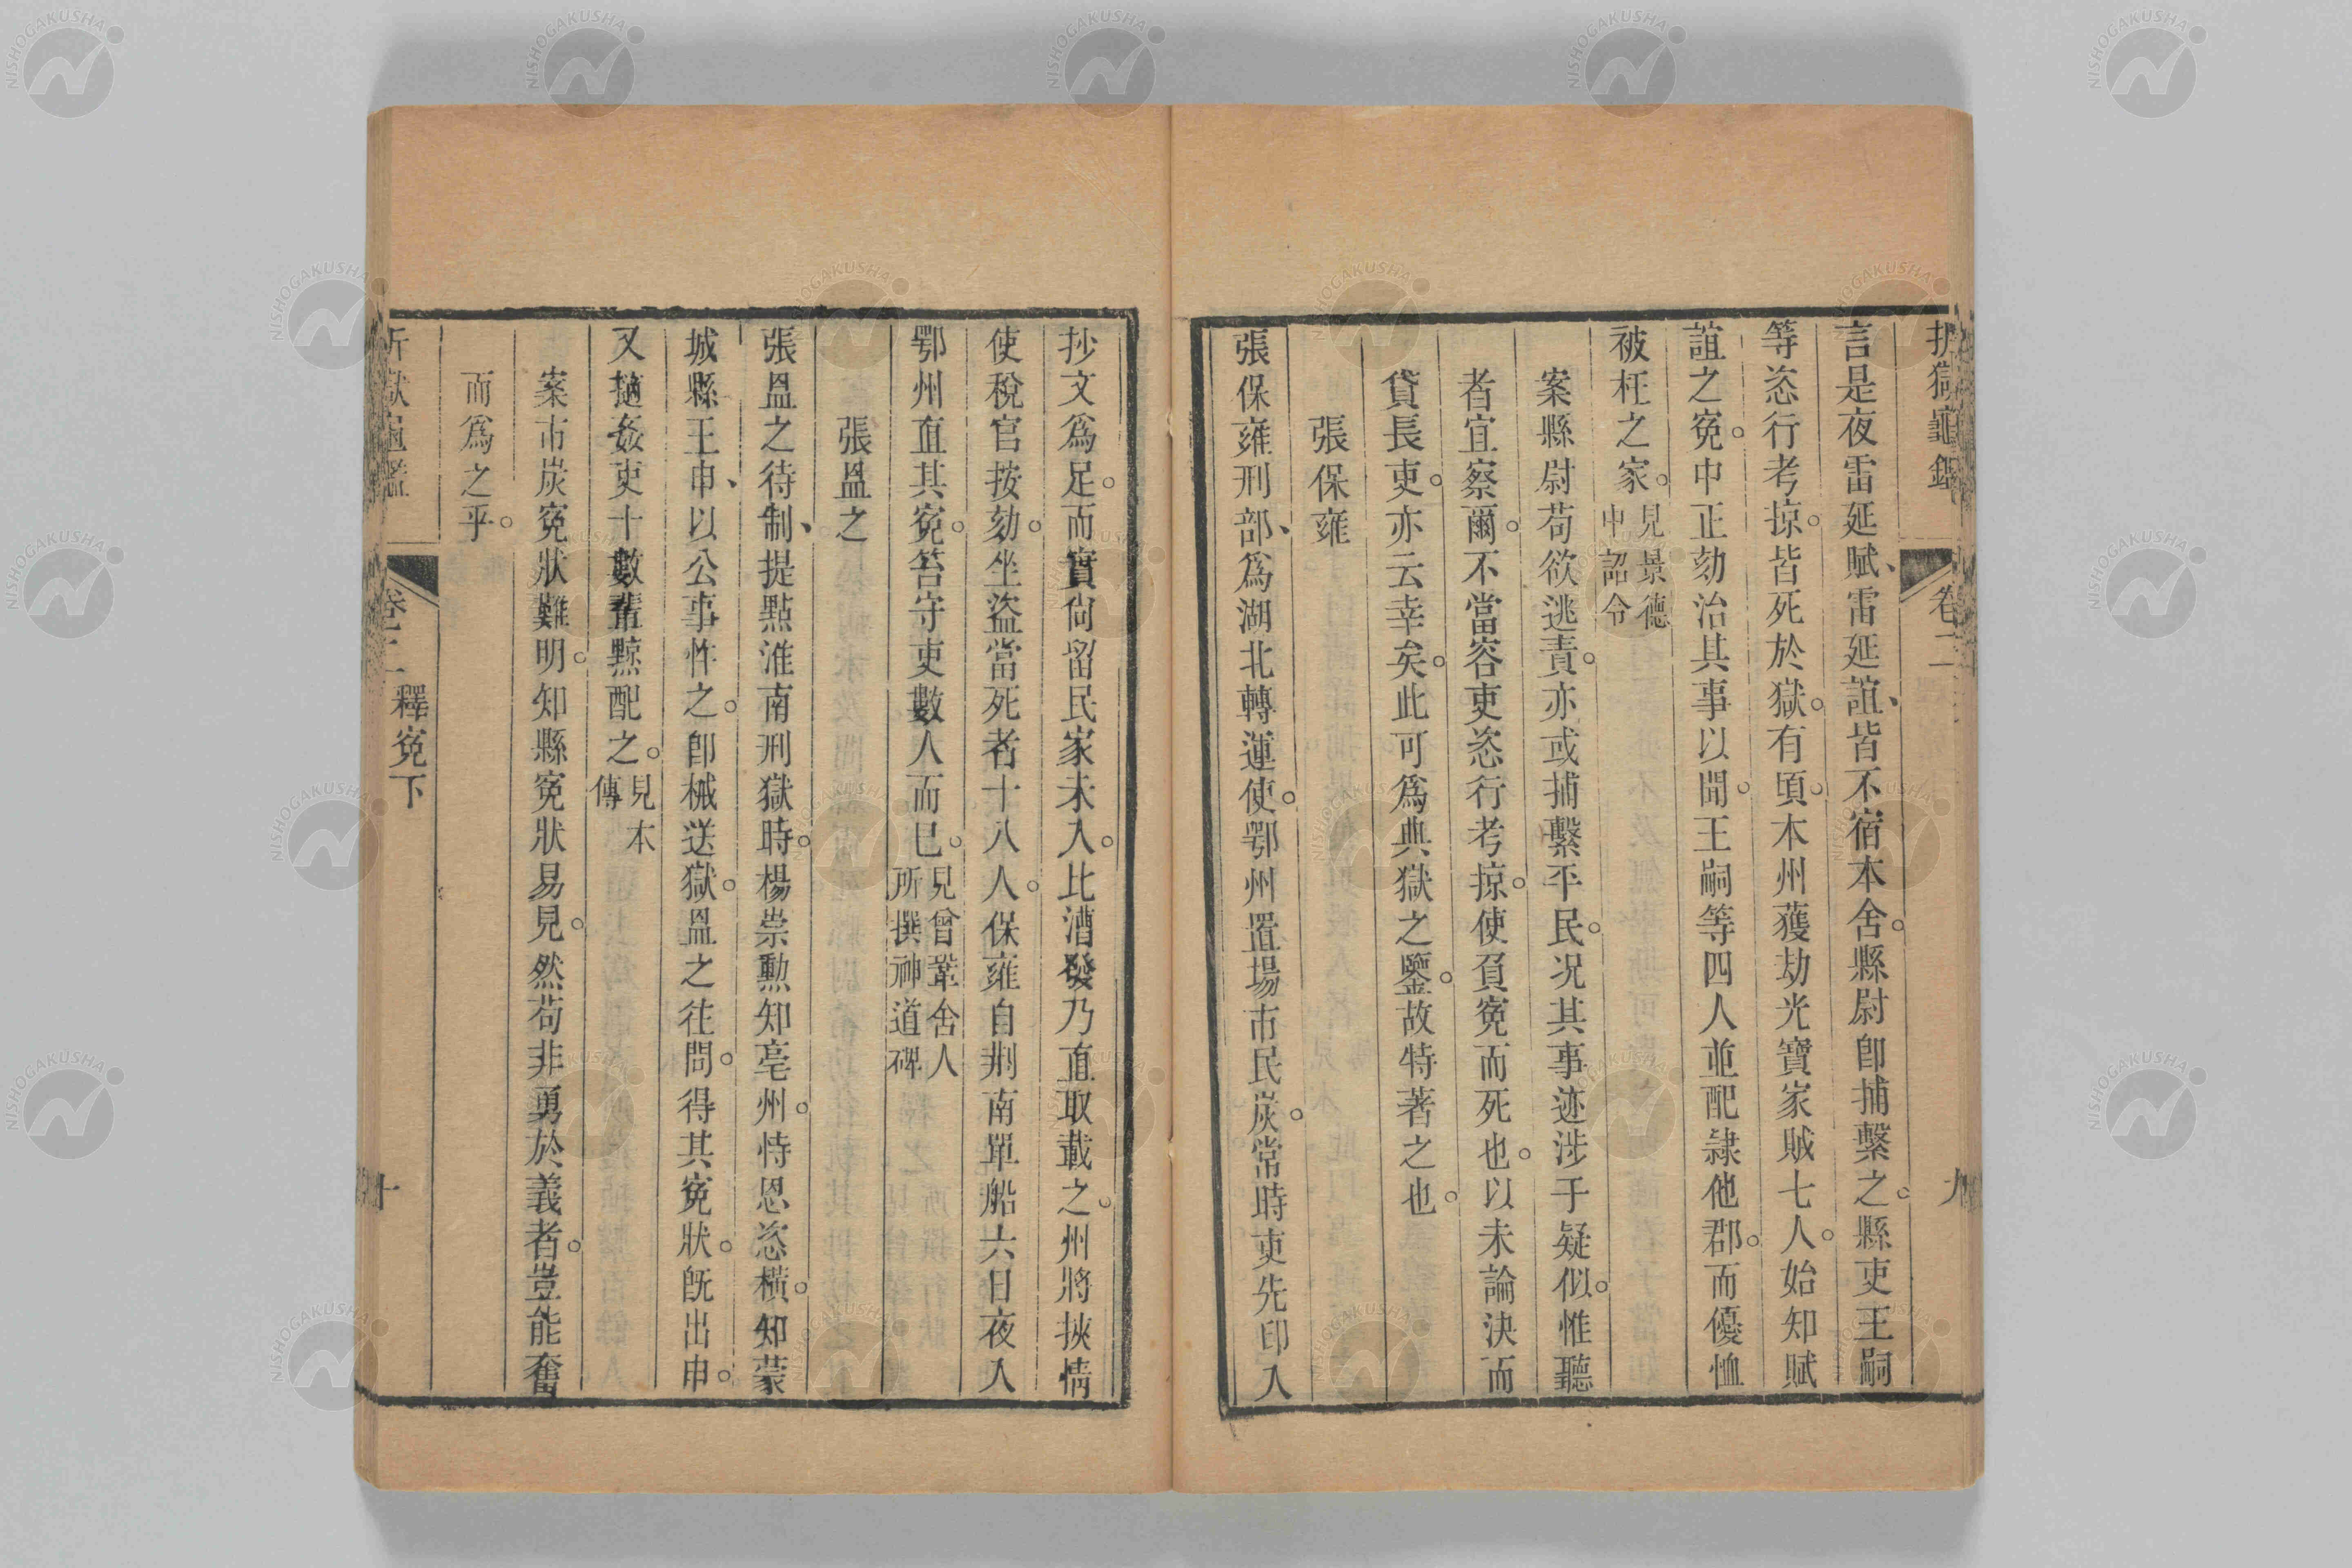 折獄龜鑑 卷二 九
言是夜雷延賦、雷延誼、皆不宿本舍。縣尉卽捕繫之。縣吏王嗣
等恣行考掠。皆死於獄。有頃。本州獲劫光寶家賊七人。始知賦
誼之寃。中正劾治其事以聞。王嗣等四人並配隷他郡。而優恤
被枉之家。見景德中詔令
案縣尉苟欲逃責。亦或捕繫平民。况其事迹涉于疑似。惟聽
者宜察爾。不當容吏恣行考掠。使負寃而死也。以未論決而
貸長吏。亦云幸矣。此可爲典獄之鑒。故特著之也。
張保雍
張保雍刑部、爲湖北轉運使。鄂州置場市民炭。常時吏先印入
抄文爲足。而實尙留民家未入。比漕發乃直取載之。州將挾情
使稅官按劾。坐盜當死者十八人。保雍自荆南單船六日夜入
鄂州直其寃。笞守吏數人而已。見曾鞏舍人所撰神道碑
張昷之
張昷之待制、提點淮南刑獄時。楊崇勳知亳州。恃恩恣橫。知蒙
城縣王申、以公事忤之。卽械送獄。昷之往問。得其寃狀。旣出申。
又擿姦吏十數輩黥配之。見本傳
案市炭寃狀難明。知縣寃狀易見。然苟非勇於義者。豈能奮
而爲之乎。
折獄龜鑑 卷二 釋寃下 十